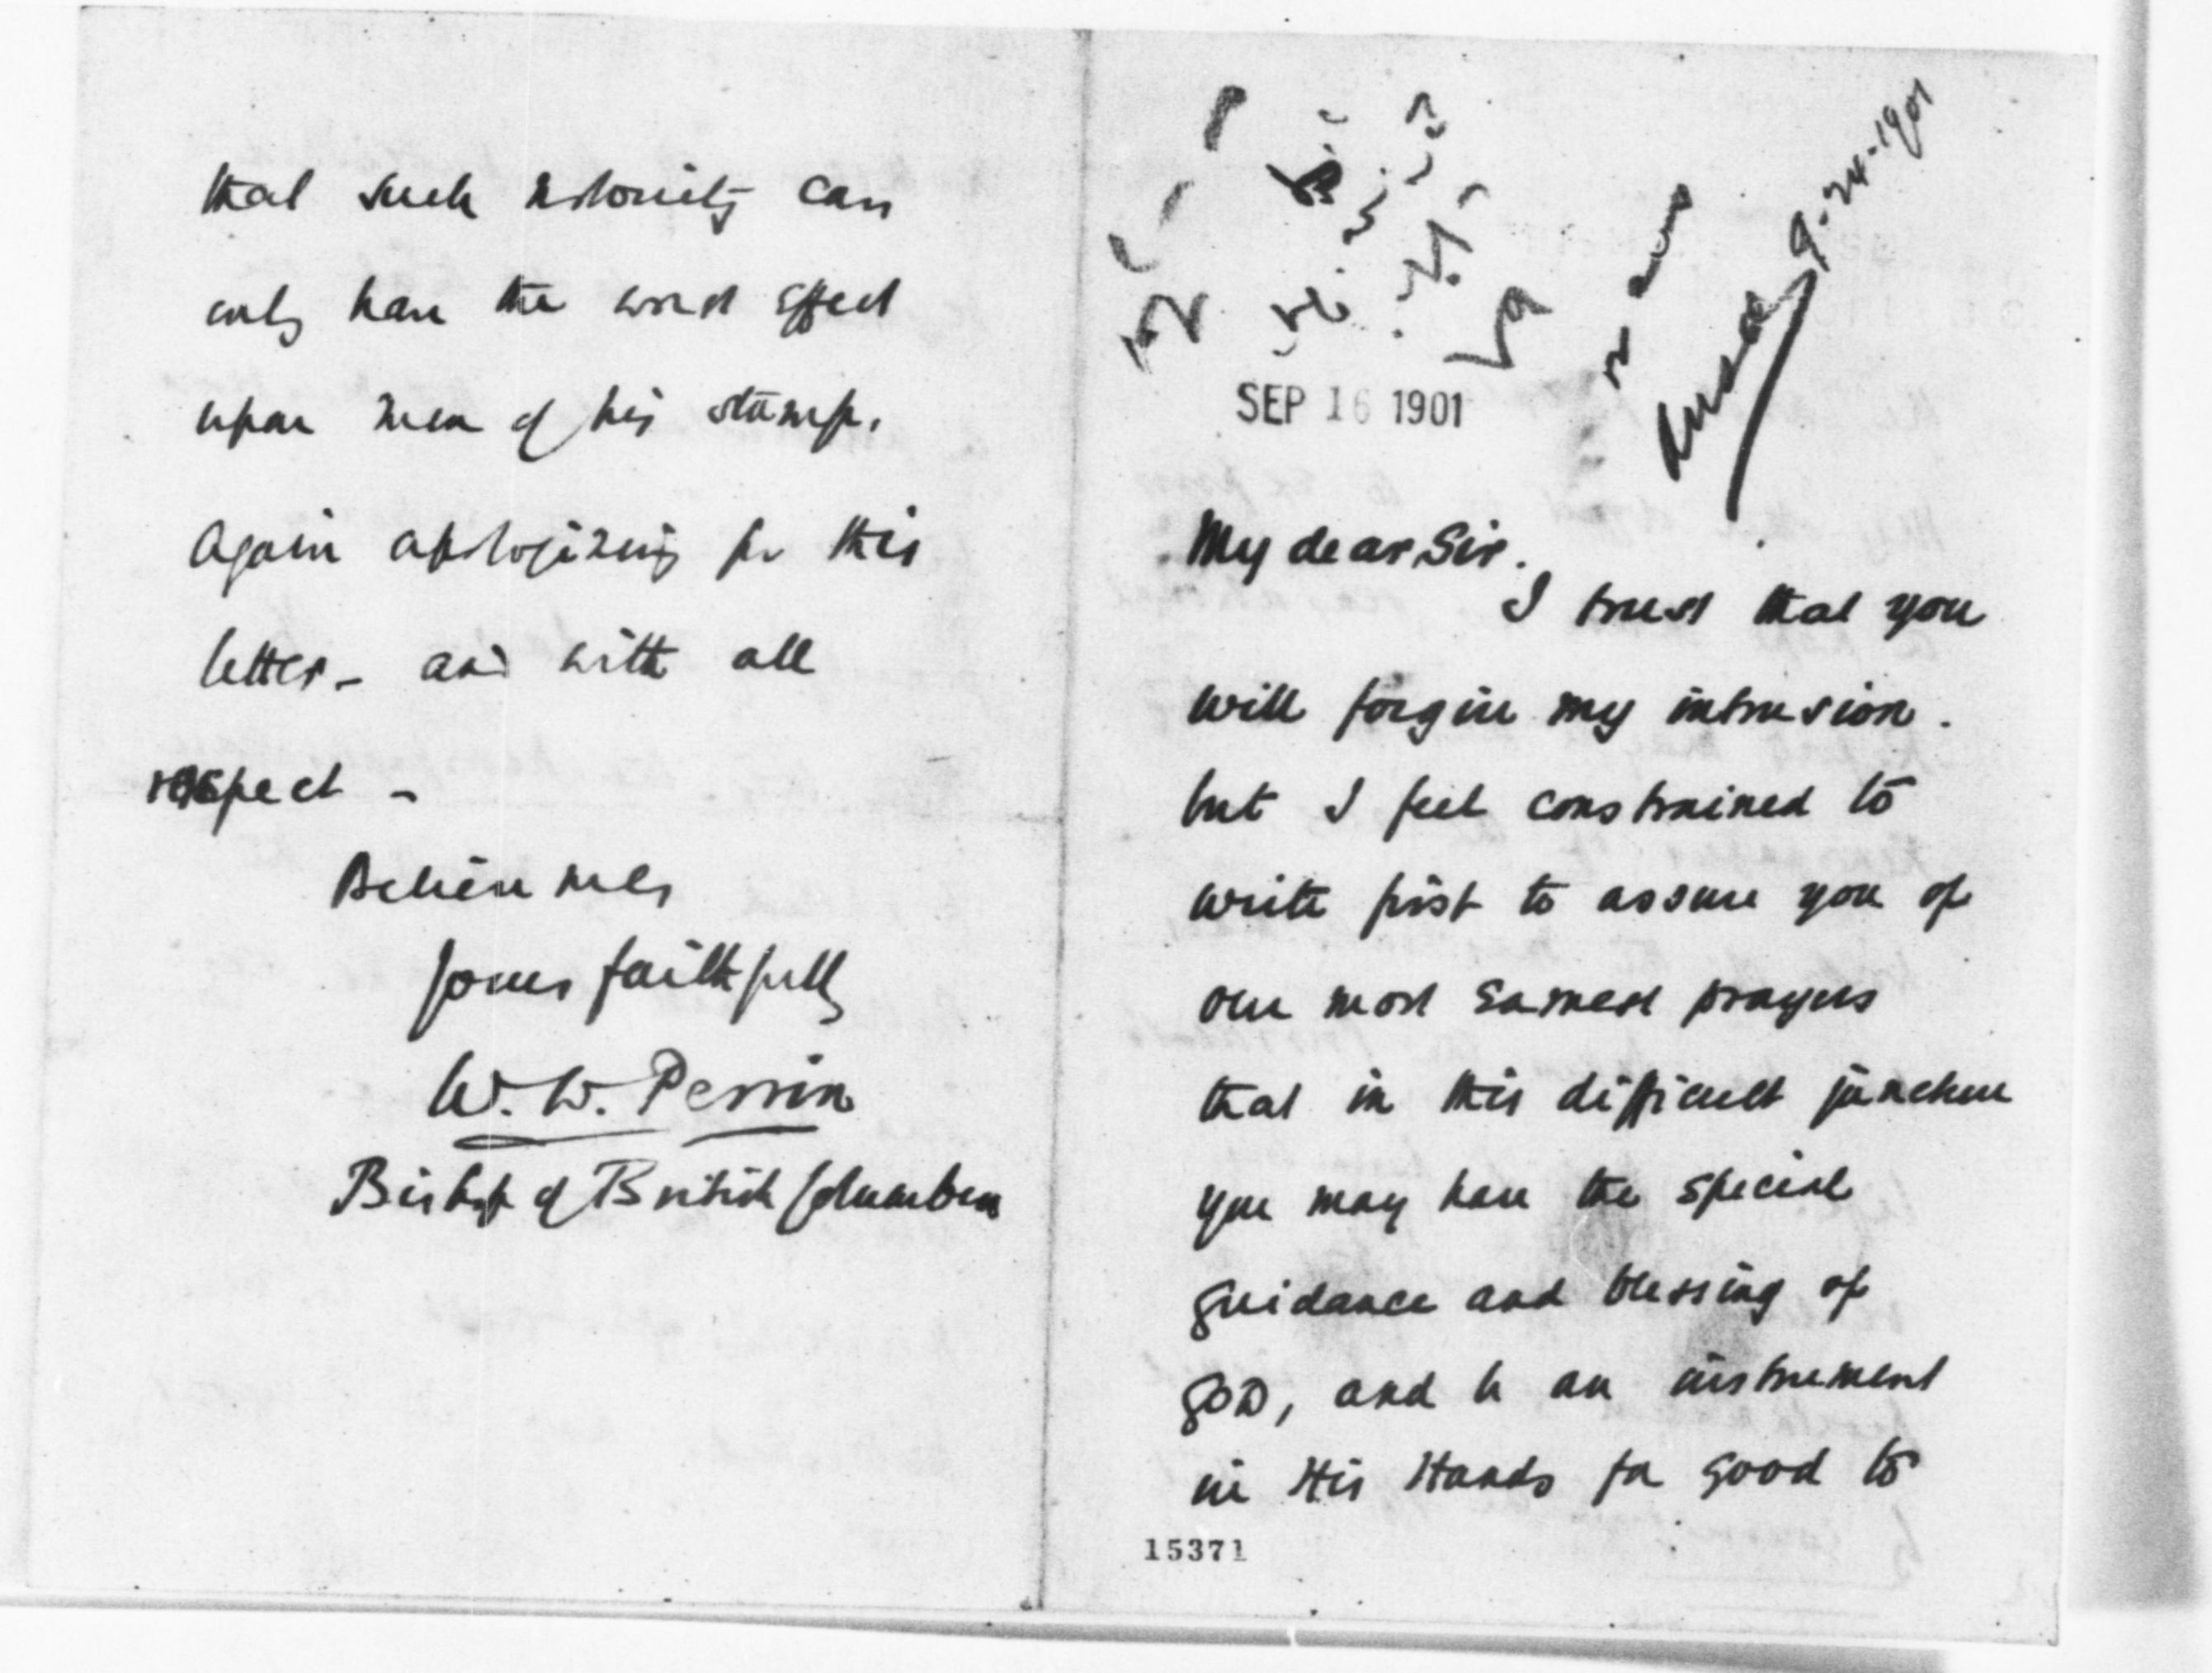 that such notoriety can
only have the worst effect
upon men of his stamp.
Again apologizing for this
letter - and with all
respect -
Believe me
Yours faithfully
W. W. Perrin
Bishop of British Columbia
9-24-1901
SEP 16 1901
My dear Sir.
I trust that you
will forgive my intrusion.
but I feel constrained to
write first to assure you of
our most earnest prayers
that in this difficult juncture
you may have the special
guidance and blessing of
GOD, and be an instrument
in His Hands for good to
15371